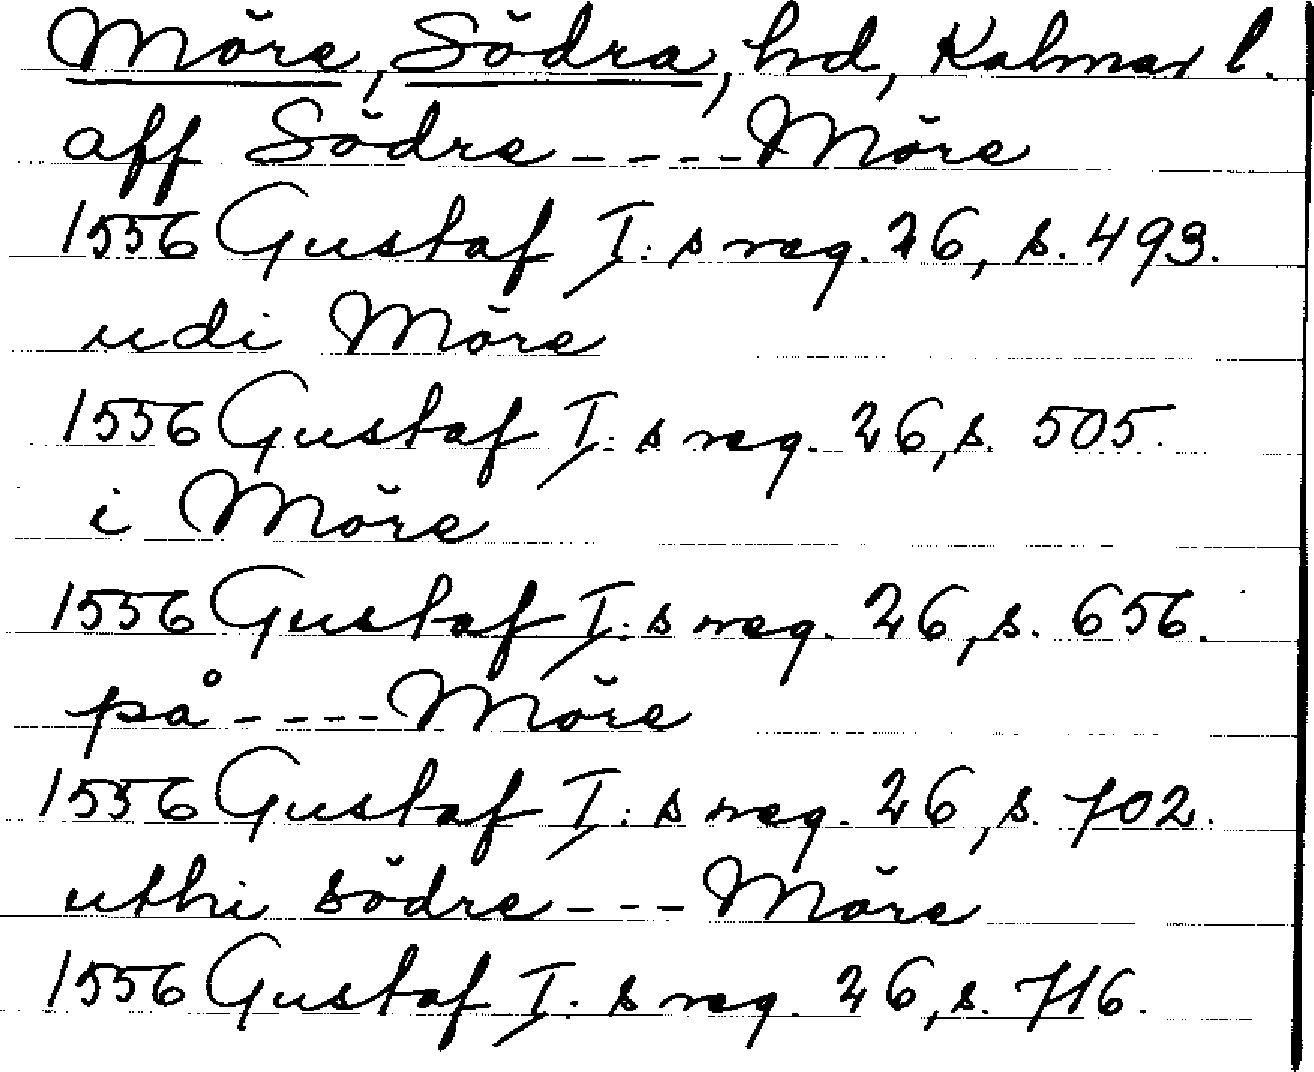 Möre, Södra, hd, Kalmar l.
aff Södre ---- Möre
1556 Gustaf I:s reg. 26, s. 493.
udi Möre
1556 Gustaf I:s reg. 26, s. 505.
i Möre
1556 Gustaf I:s reg. 26, s. 656.
på ---- Möre
1556 Gustaf I:s reg. 26, s. 702.
uthi södre --- Möre
1556 Gustaf I:s reg. 26, s. 716.